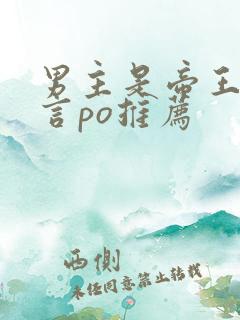 男主是帝王
言po推薦
西側
未任同意禁止转载